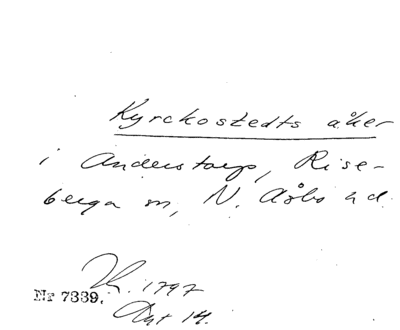 Kyrckostedts åker
i Anderstorp, Rise-
berga sn, N. Åsbo hd.
Nr 7339. Lh. 1797
Akt 14.